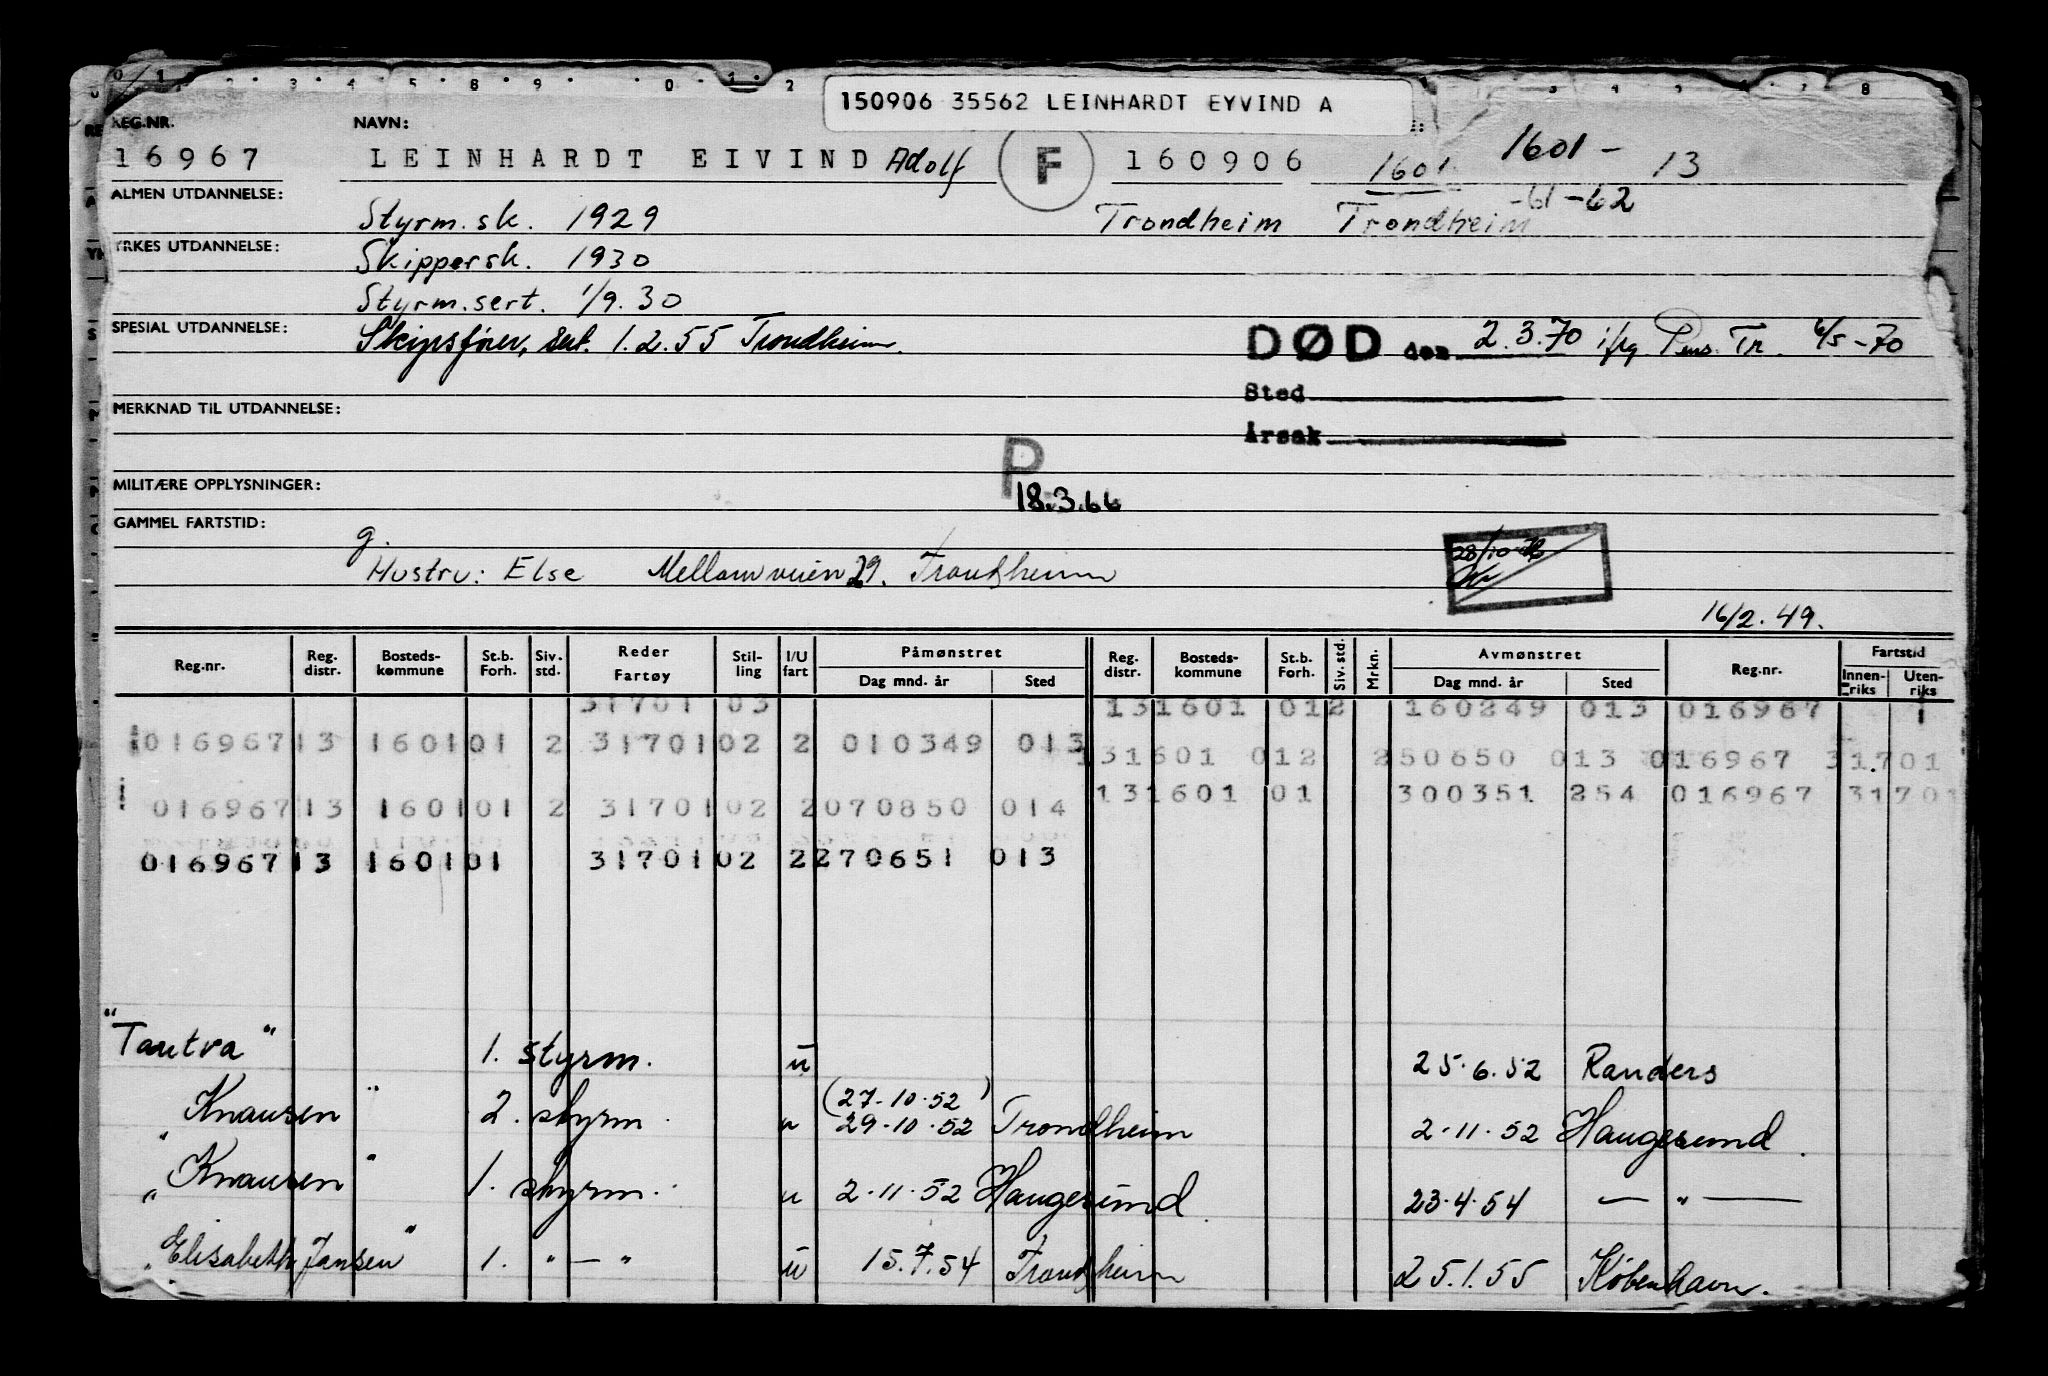 150906 35562 LEINHARDT EYVIND A
REG.NR. NAVN:
16967 LEINHARDT EIVIND Adolf F 160906 1601 1601- 13
-61-62
ALMEN UTDANNELSE: Styrm.sk. 1929 Trondheim Trondheim
YRKES UTDANNELSE: Skippersk. 1930
Styrm.sert. 1/9.30
SPESIAL UTDANNELSE: Skipsfører, sert. 1.2.55 Trondheim.
DØD den 2.3.70 ifg. Pens. Tr. 6/5-70
Sted
Årsak
MERKNAD TIL UTDANNELSE:
P
18.3.66
MILITÆRE OPPLYSNINGER:
GAMMEL FARTSTID: g.
Hustru: Else Mellomveien 29. Trondheim
28/10
16/2.49.
Reg.nr. Reg. distr. Bosteds-kommune St.b. Forh. Siv. std. Reder Fartøy Stil-ling I/U fart Påmønstret Dag mnd. år Sted Reg. distr. Bosteds-kommune St.b. Forh. Siv. std. Mrkn. Avmønstret Dag mnd. år Sted Reg.nr. Fartstid Innen-riks Uten-riks
31701 03 131601 012 160249 013 016967
016967 13 1601 01 2 31701 02 2 010349 013 131601 012 250650 013 016967 31701
016967 13 1601 01 2 31701 02 2 070850 014 131601 01 300351 254 016967 31701
016967 13 1601 01 31701 02 2 270651 013
"Tautra" 1. styrm. u 25.6.52 Randers
"Knausen" 2. styrm. u (27.10.52) 29.10.52 Trondheim 2.11.52 Haugesund.
"Knausen" 1. styrm. u 2.11.52 Haugesund. 23.4.54 — " —
"Elisabeth Jansen" 1. " — " u 15.7.54 Trondheim 25.1.55 København.